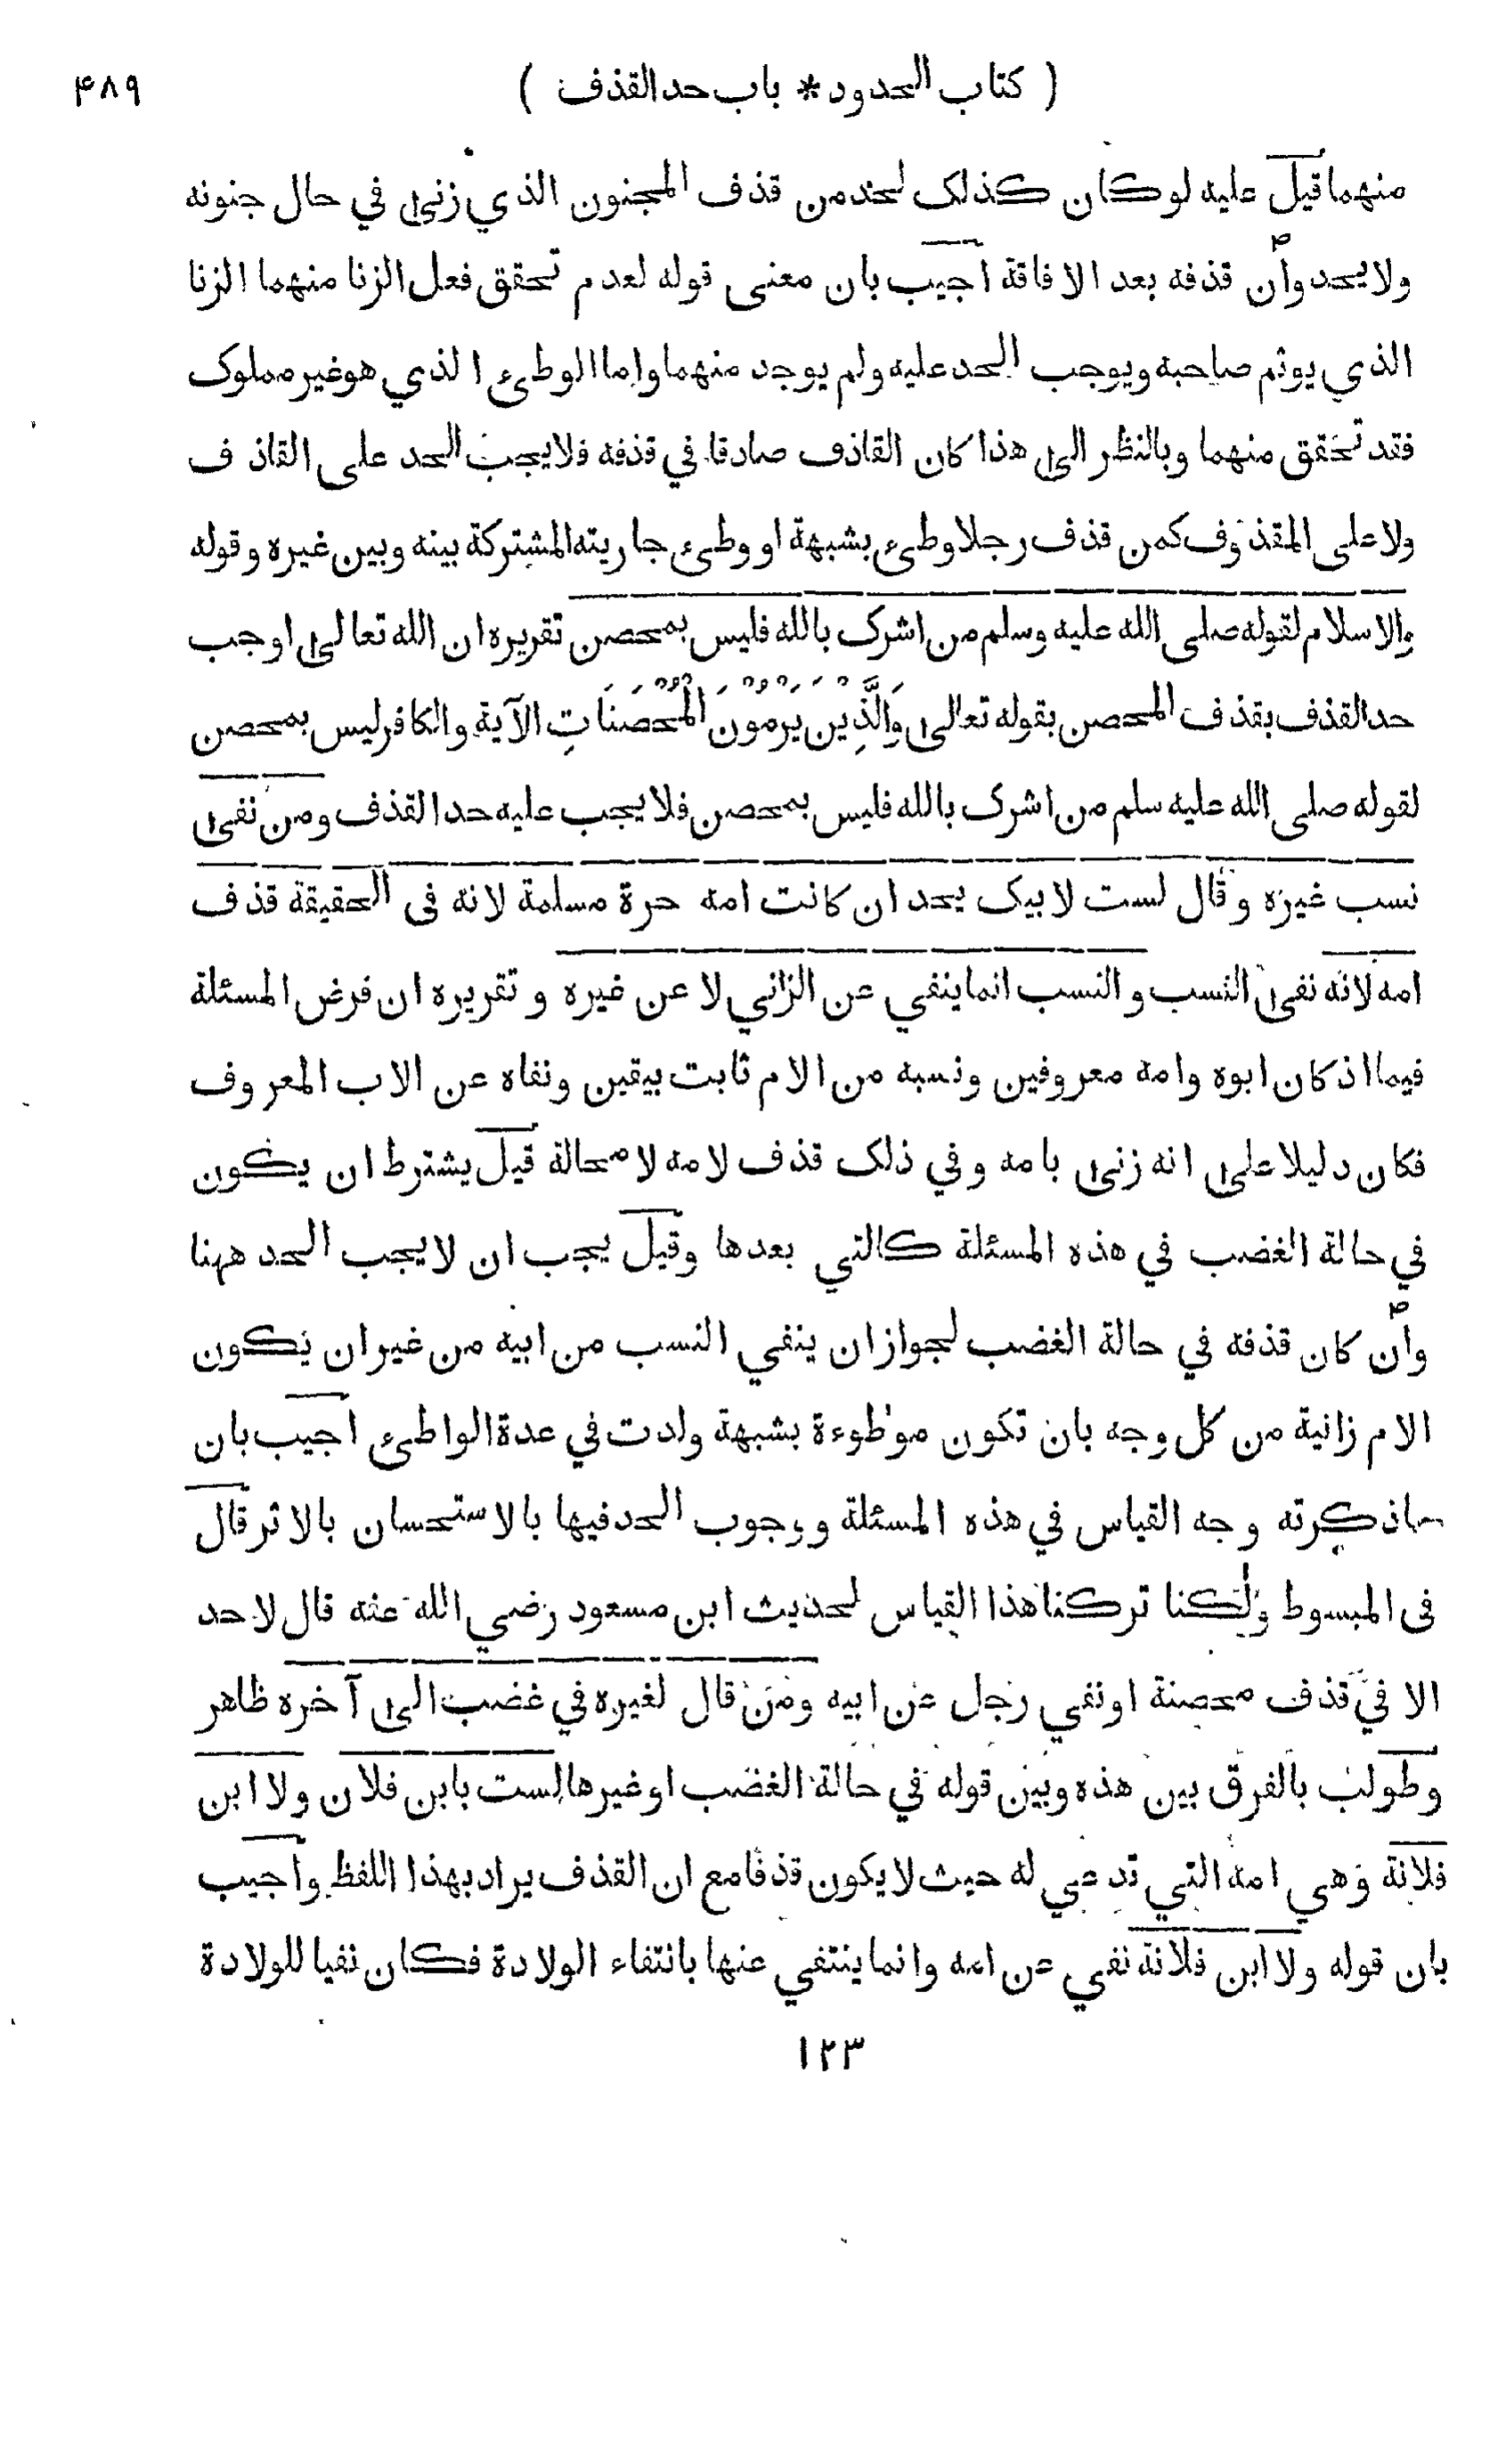 ( كتاب الحدود * باب حد القذف ) ۴۸۹
منهما قيل عليه لو كان كذلک لحد من قذف المجنون الذي زنى في حال جنونه
ولا يحد وان قذفه بعد الافاقة اجيب بان معنى قوله لعدم تحقق فعل الزنا منهما الزنا
الذي يوثم صاحبه ويوجب الحد عليه ولم يوجد منهما واما الوطىء الذي هو غير مملوک
فقد تحقق منهما وبالنظر الى هذا كان القاذف صادقا في قذفه فلا يجب الحد على القاذف
ولا على المقذوف كمن قذف رجلا وطىء بشبهة او وطىء جاريته المشتركة بينه وبين غيره وقوله
والاسلام لقوله صلى الله عليه وسلم من اشرک بالله فليس بمحصن تقريره ان الله تعالى اوجب
حد القذف بقذف المحصن بقوله تعالى وَالَّذِينَ يَرْمُونَ الْمُحْصَنَاتِ الآية والكافر ليس بمحصن
لقوله صلى الله عليه سلم من اشرک بالله فليس بمحصن فلا يجب عليه حد القذف ومن نفى
نسب غيره وقال لست لابيک يحد ان كانت امه حرة مسلمة لانه فى الحقيقة قذف
امه لانه نفى النسب والنسب انما ينفي عن الزاني لا عن غيره وتقريره ان فرض المسئلة
فيما اذ كان ابوه وامه معروفين ونسبه من الام ثابت بيقين ونفاه عن الاب المعروف
فكان دليلا على انه زنى بامه وفي ذلک قذف لامه لا محالة قيل يشترط ان يكون
في حالة الغضب في هذه المسئلة كالتي بعدها وقيل يجب ان لا يجب الحد ههنا
وان كان قذفه في حالة الغضب لجواز ان ينفي النسب من ابيه من غير ان يكون
الام زانية من كل وجه بان تكون موطوءة بشبهة ولدت في عدة الواطىء اجيب بان
ماذكرته وجه القياس في هذه المسئلة ووجوب الحد فيها بالاستحسان بالاثر قال
فى المبسوط ولكنا تركنا هذا القياس لحديث ابن مسعود رضي الله عنه قال لا حد
الا في قذف محصنة او نفي رجل عن ابيه ومن قال لغيره في غضب الى آخره ظاهر
وطولب بالفرق بين هذه وبين قوله في حالة الغضب او غيرها لست بابن فلان ولا ابن
فلانة وهي امه التي تدعي له حيث لا يكون قذفا مع ان القذف يراد بهذا اللفظ واجيب
بان قوله ولا ابن فلانة نفي عن امه وانما ينتفي عنها بانتفاء الولادة فكان نفيا للولادة
۱۲۳